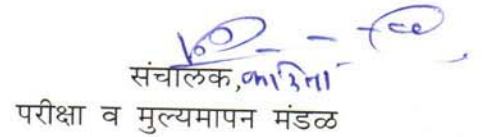 संचालक, करिता
परीक्षा व मुल्यमापन मंडळ